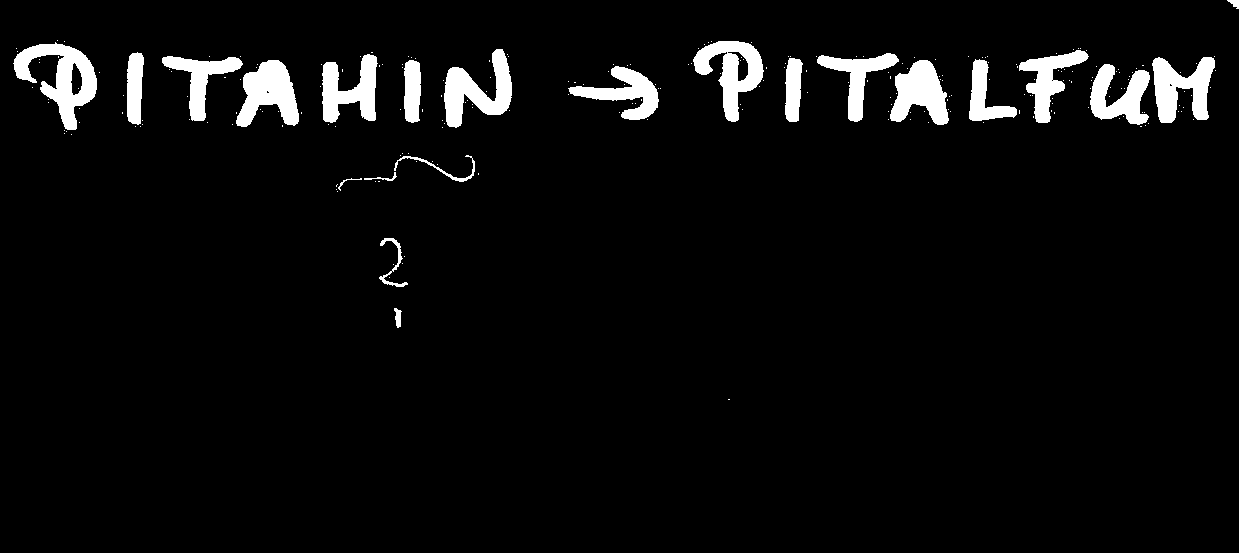 PITAHIN → PITALFUM
?